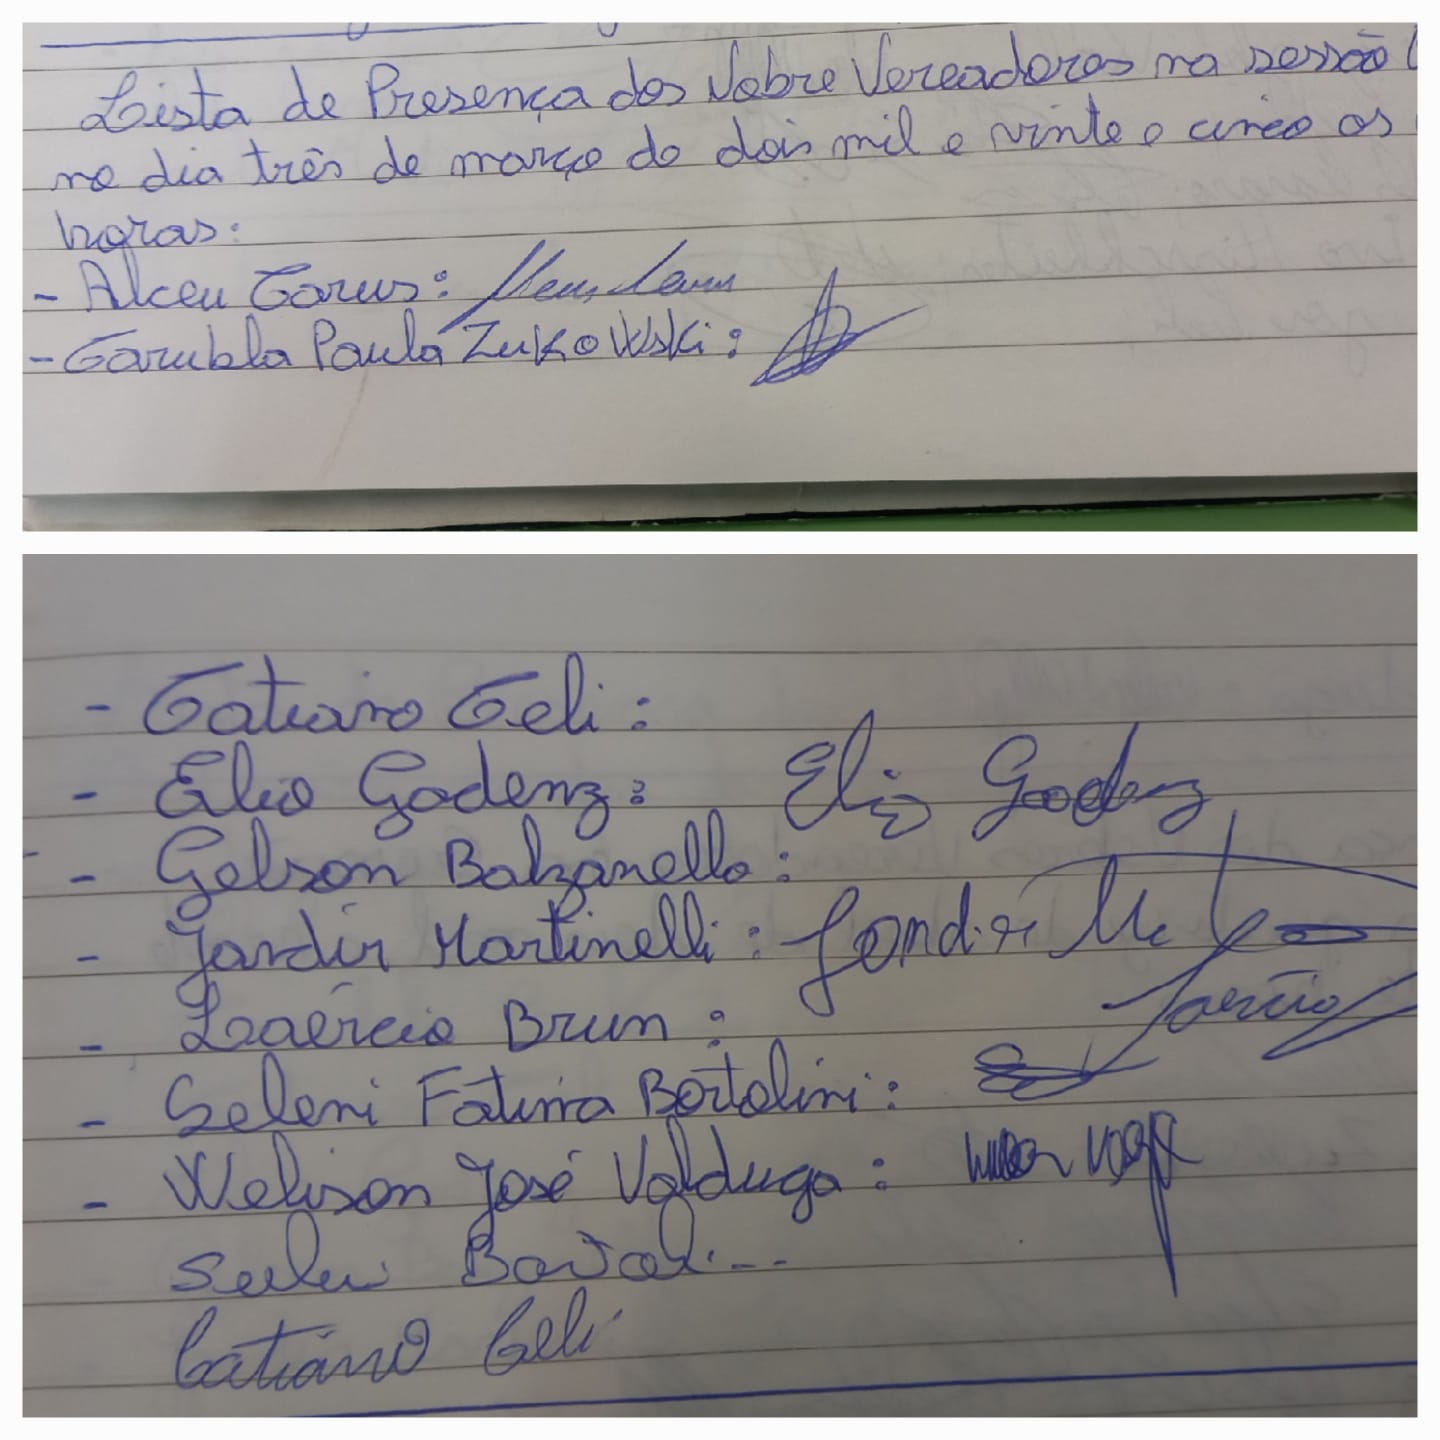 Lista de Presença dos Nobre Vereadores na sessão
no dia três de março de dois mil e vinte e cinco as
horas:
- Alceu Tarus:
- Tarubla Paula Zukowski:
- Tatiano Teli:
- Elio Godenz: Elio Godenz
- Gelson Balzanello:
- Jandir Martinelli: Jondir
- Laércio Brun: Laercio
- Seleni Fatima Bortolini:
- Welison José Valduga:
Tatiano Teli